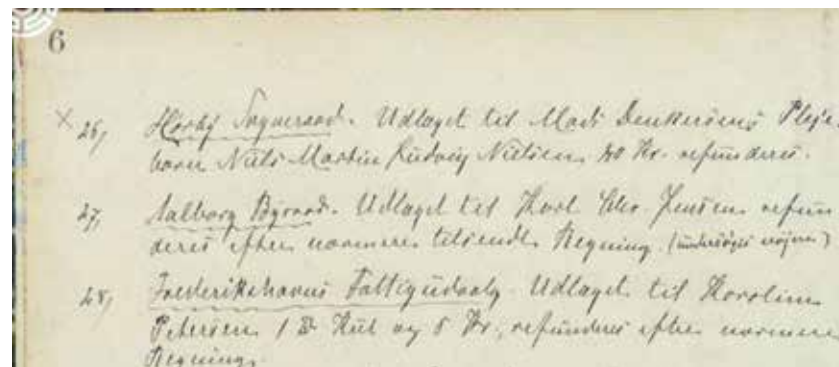 6
× 26, Hørby Sogneraad. Udlaget til Mads Denkersens Pleje-
barn Niels Martin Ludvig Nielsen 40 Kr. refunderes.
27, Aalborg Byraad. Udlaget til Karl Chr. Jensen refun
deres efter nærmere tilsendt Regning. (undersøges nøjere)
28, Frederikshavns Fattigudvalg. Udlaget til Karoline
Petersen 1 Kul og 5 Kr., refunderes efter nærmere
Regning.